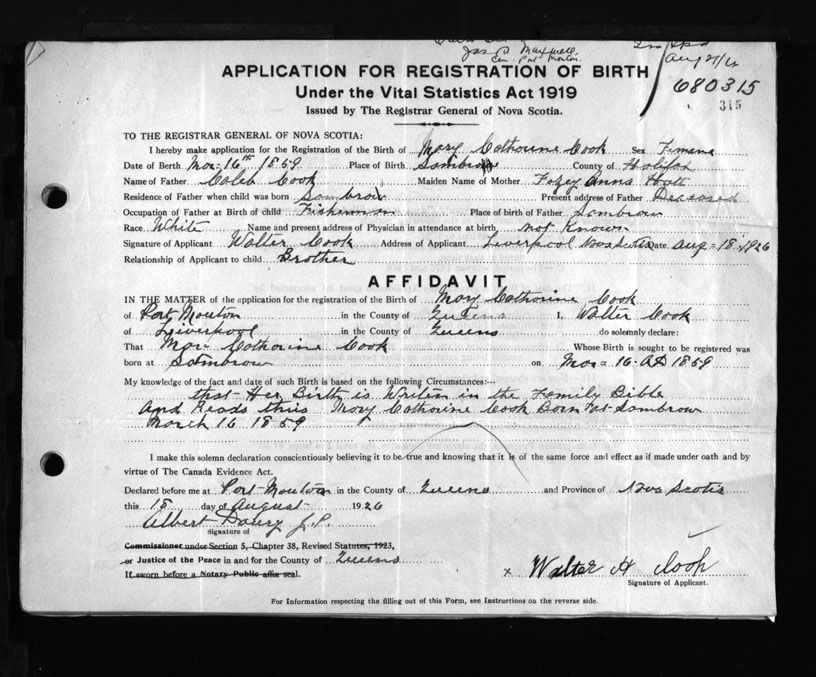 Jas D Maxwell
Port Mouton
APPLICATION FOR REGISTRATION OF BIRTH
Aug 21/26
Under the Vital Statistics Act 1919
680315
315
Issued by The Registrar General of Nova Scotia.
TO THE REGISTRAR GENERAL OF NOVA SCOTIA:
I hereby make application for the Registration of the Birth of Mary Cathorine Cook Sex
Date of Birth Mar. 16th 1859 Place of Birth Sambrow County of Halifax
Name of Father Caleb Cook Maiden Name of Mother Anna
Residence of Father when child was born Sambrow Present address of Father Deceased
Occupation of Father at Birth of child Fisherman Place of birth of Father Sambrow
Race White Name and present address of Physician in attendance at birth not Known
Signature of Applicant Walter Cook Address of Applicant Liverpool Nova Scotia Date Aug - 18 - 1926
Relationship of Applicant to child Brother
AFFIDAVIT
IN THE MATTER of the application for the registration of the Birth of Mary Cathorine Cook
of Port Mouton in the County of Queens I, Walter Cook
of Liverpool in the County of Queens do solemnly declare:
That Mary Cathorine Cook Whose Birth is sought to be registered was
born at Sambrow on Mar = 16 - AD 1859
My knowledge of the fact and date of such Birth is based on the following Circumstances:—
that Her Birth is Writen in the Family Bible
And Reads thus Mary Cathorine Cook Born at Sambrow
March 16 1859
I make this solemn declaration conscientiously believing it to be true and knowing that it is of the same force and effect as if made under oath and by
virtue of The Canada Evidence Act.
Declared before me at Port Mouton in the County of Queens and Province of Nova Scotia
this 18 day of August 1926
Albert J.P.
Signature of
Commissioner under Section 5, Chapter 38, Revised Statutes, 1923,
or Justice of the Peace in and for the County of Queens
If sworn before a Notary Public affix seal.
x Walter H Cook
Signature of Applicant.
For Information respecting the filling out of this Form, see Instructions on the reverse side.